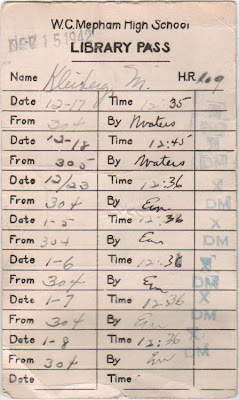 W.C. Mepham High School
DEC 15 1942
LIBRARY PASS
Name M. H.R. 109
Date 12-17 Time 12:35
From 304 By Waters
Date 12-18 Time 12:45
From 305 By Waters
Date 12/23 Time 12:36
From 304 By
Date 1-5 Time 12:36
From 304 By DM
Date 1-6 Time 12:36
From 304 By DM
Date 1-7 Time 12:36
From 304 By DM
Date 1-8 Time 12:36
From 304 By DM
Date Time